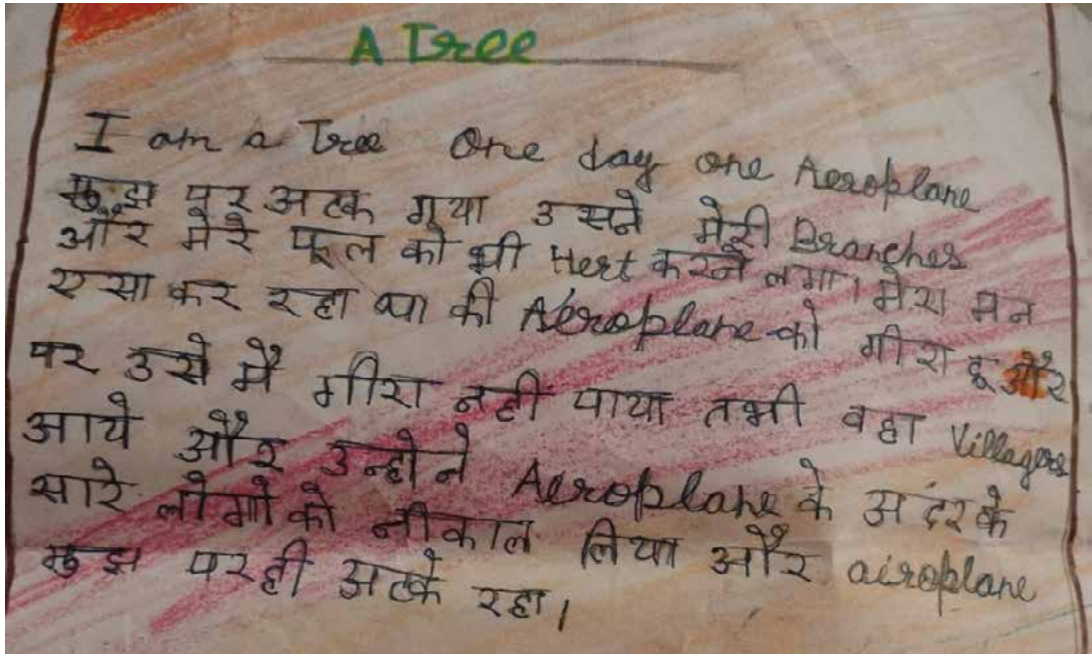 A Tree
I am a Tree One day one Aeroplane
मुझ पर अटक गया उसने मेरी Branches
और मेरे फूल को भी Hert करने लगा। मेरा मन
एसा कर रहा था की Aeroplane को गीरा दू और
पर उसे मैं गीरा नही पाया तभी वहा Villagers
आये और उन्होने Aeroplane के अंदर के
सारे लोगो को नीकाल लिया और airoplane
मुझ पर ही अटके रहा।